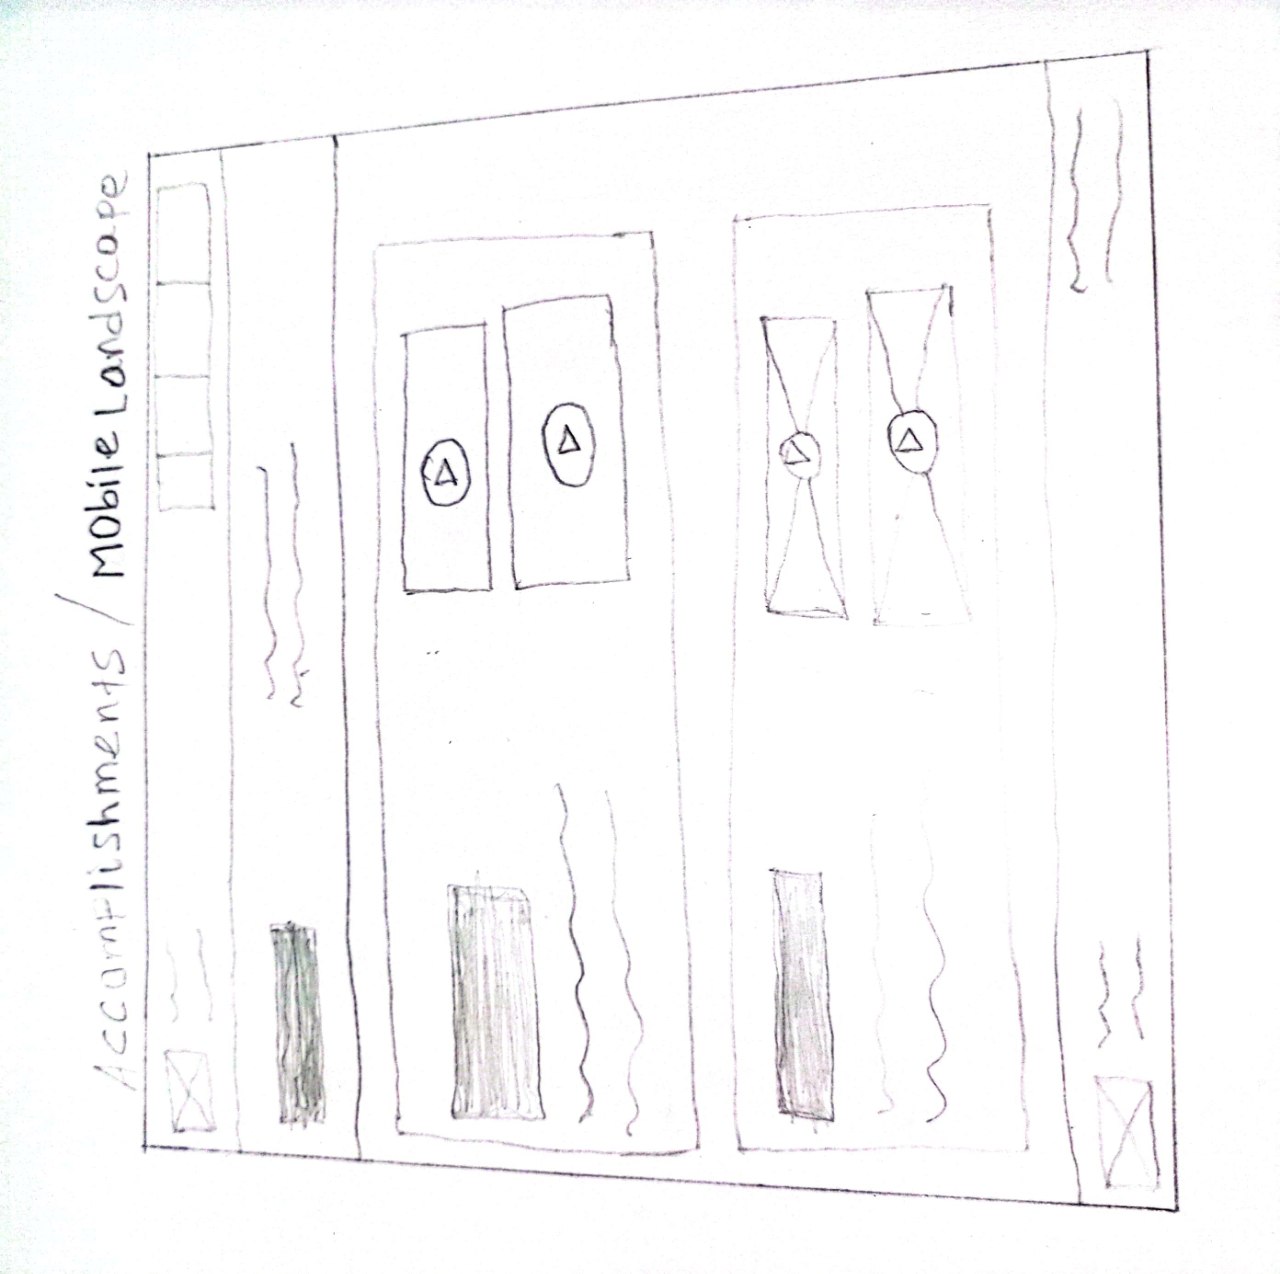 Accomplishments / Mobile Landscape